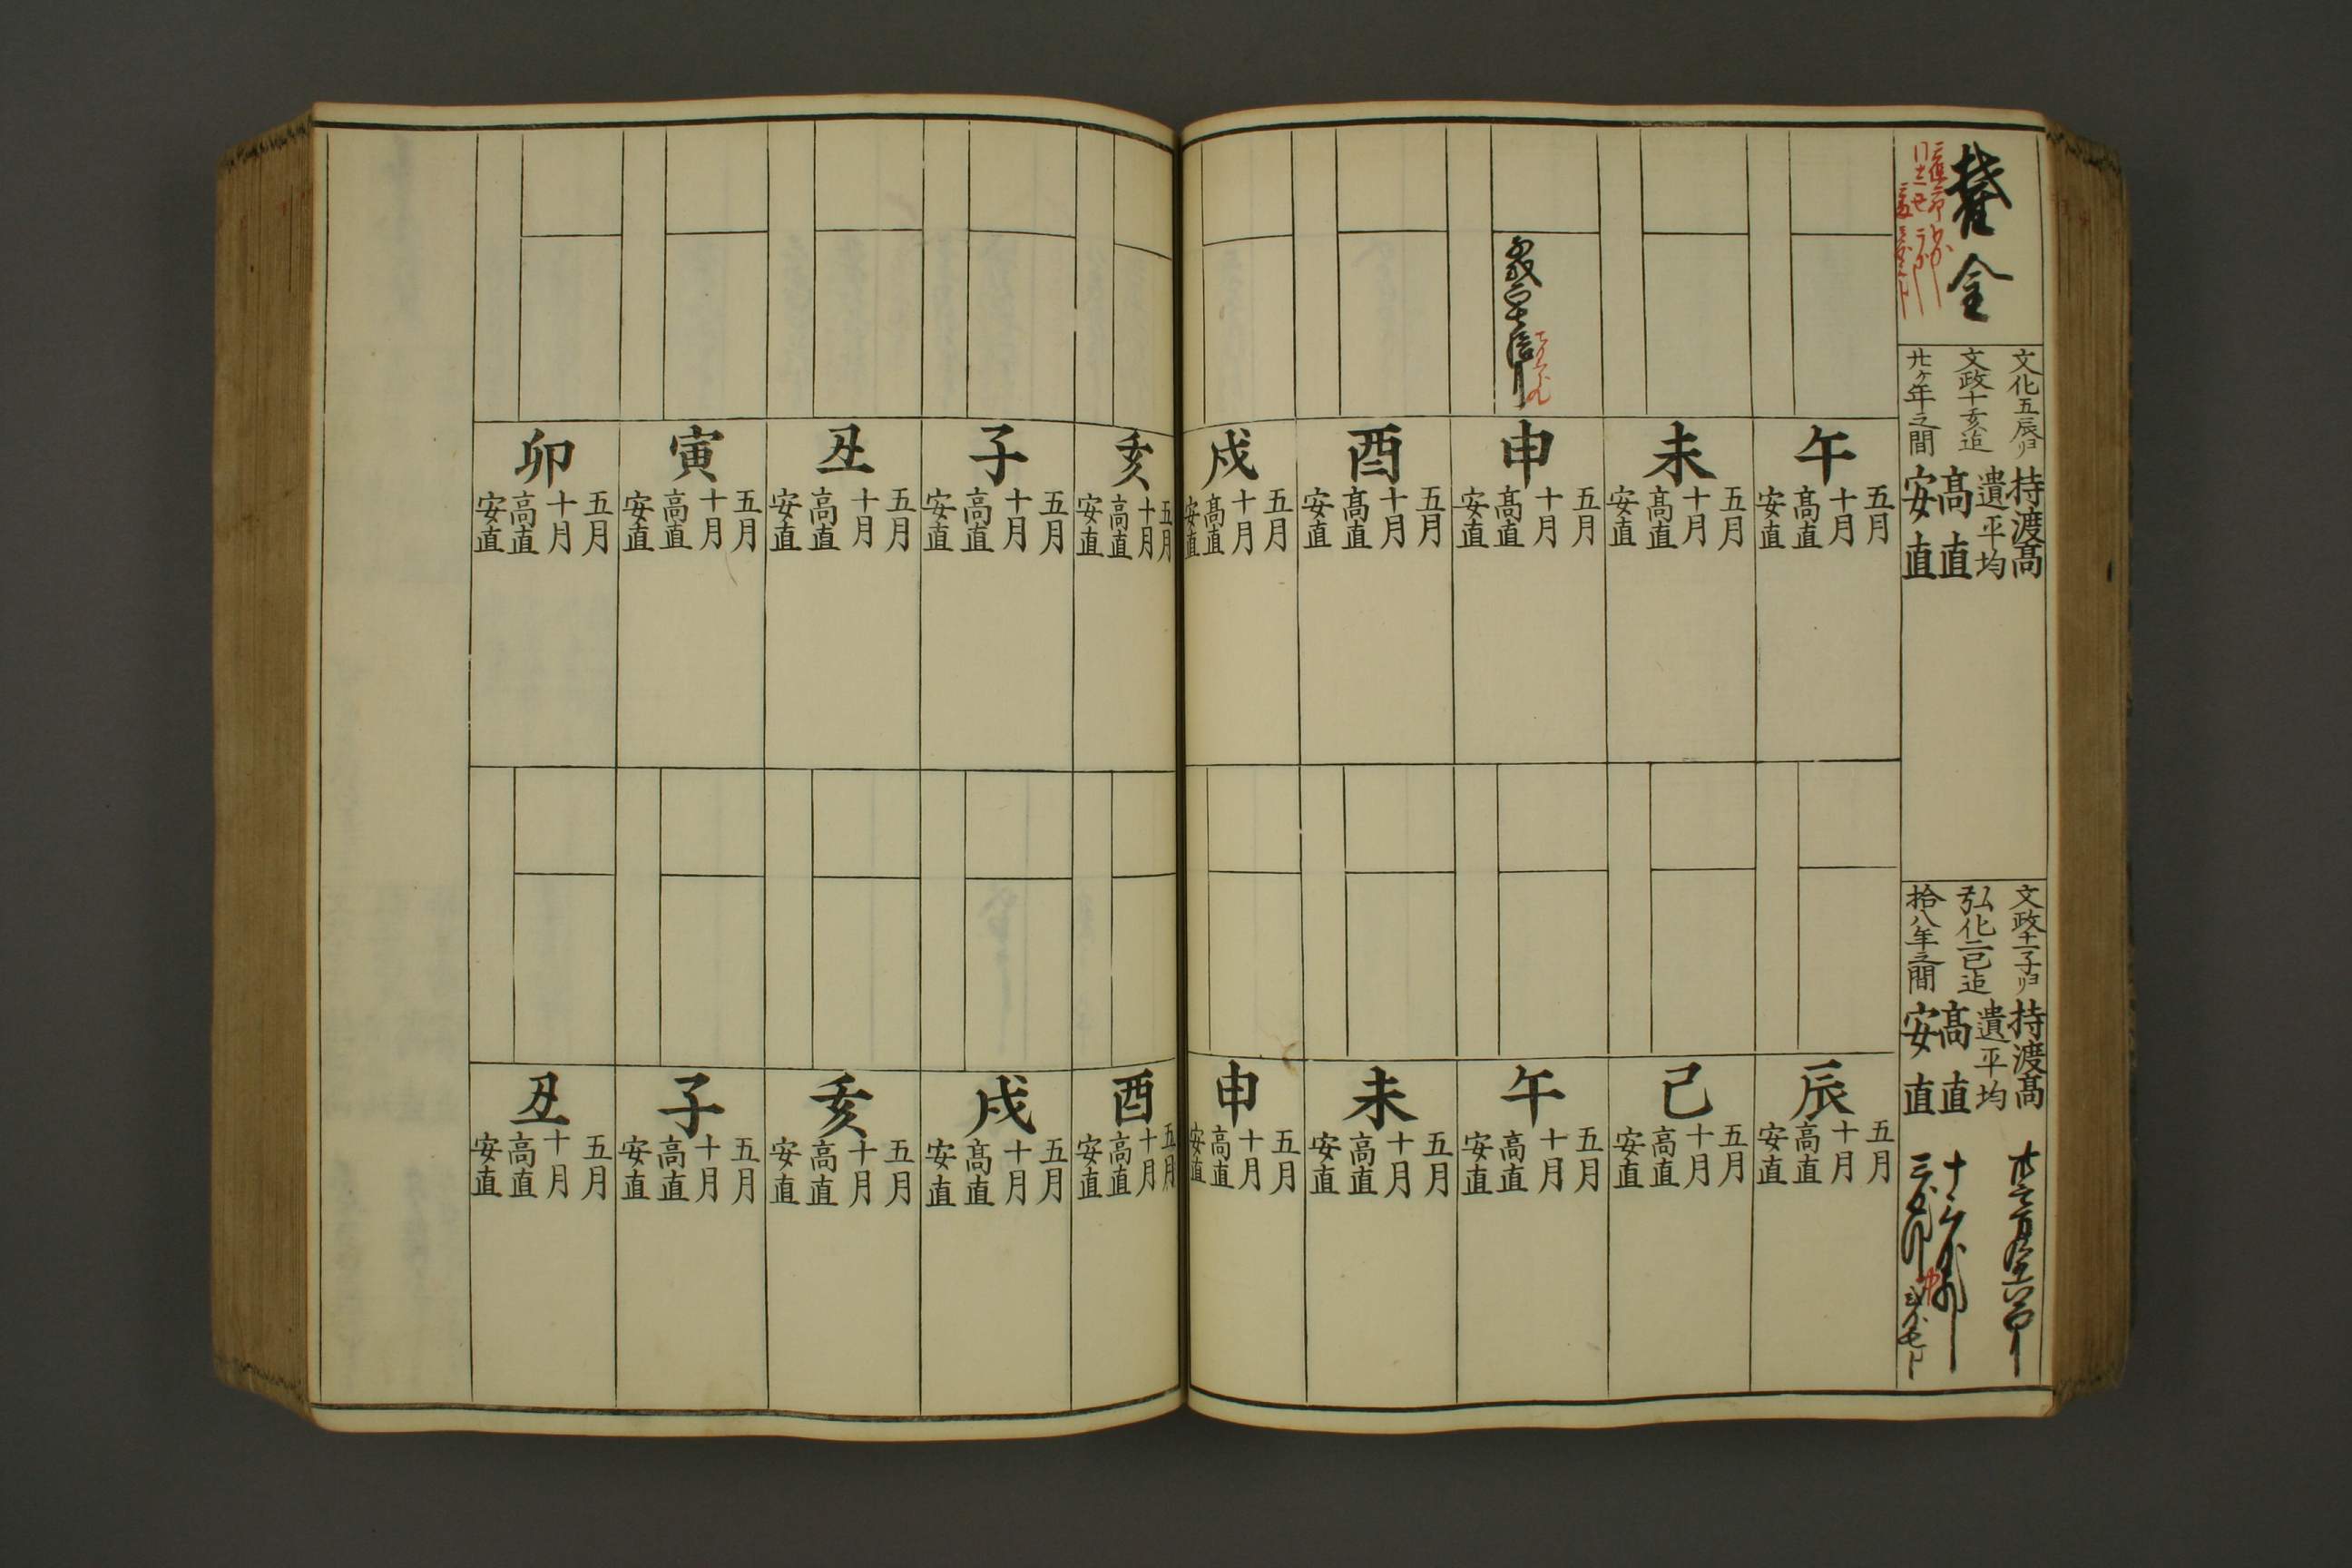 金
文化五辰ゟ
文政十亥迄
廿ヶ年之間
持渡高
遣平均
高直
安直
文政十一子ゟ
弘化二巳迄
拾八年之間
持渡高
遣平均
高直
安直
午
五月
十月
高直
安直
未
五月
十月
高直
安直
申
五月
十月
高直
安直
酉
五月
十月
高直
安直
戌
五月
十月
高直
安直
亥
五月
十月
高直
安直
子
五月
十月
高直
安直
丑
五月
十月
高直
安直
寅
五月
十月
高直
安直
卯
五月
十月
高直
安直
辰
五月
十月
高直
安直
巳
五月
十月
高直
安直
午
五月
十月
高直
安直
未
五月
十月
高直
安直
申
五月
十月
高直
安直
酉
五月
十月
高直
安直
戌
五月
十月
高直
安直
亥
五月
十月
高直
安直
子
五月
十月
高直
安直
丑
五月
十月
高直
安直